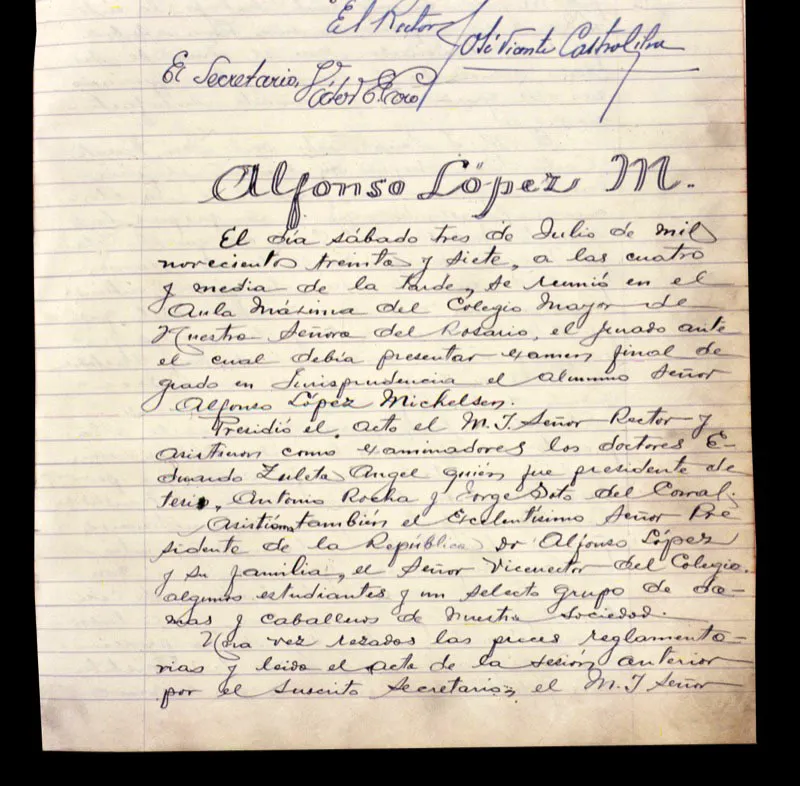 El Rector,
José Vicente Castro Silva
El Secretario,
Alfonso López M.
El día sábado tres de Julio de mil
novecientos treinta y siete, a las cuatro
y media de la tarde, se reunió en el
Aula Máxima del Colegio Mayor de
Nuestra Señora del Rosario, el jurado ante
el cual debía presentar examen final de
grado en Jurisprudencia el alumno Señor
Alfonso López Michelsen.
Presidió el acto el M. I. Señor Rector y
asistieron como examinadores los doctores E-
duardo Zuleta Angel quién fue presidente de
tesis, Antonio Rocha y Jorge Soto del Corral.
Asistió también el Excelentísimo Señor Pre
sidente de la República Dr Alfonso López
y su familia, el Señor Vicerrector del Colegio.
algunos estudiantes y un selecto grupo de da-
mas y caballeros de nuestra sociedad.
Una vez rezadas las preces reglamenta-
rias y leida el acta de la sesión anterior
por el suscrito Secretario, el M. I Señor